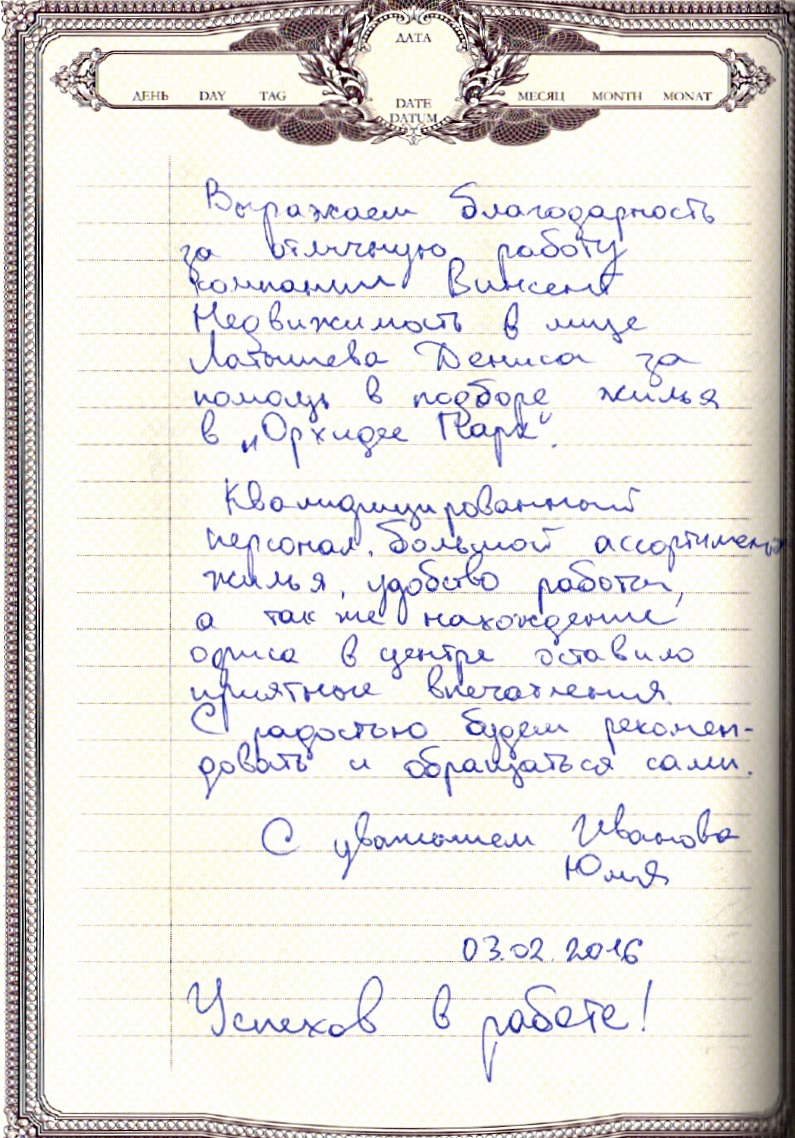 ДАТА
ДЕНЬ DAY TAG
DATE
DATUM
МЕСЯЦ MONTH MONAT
Выражаем благодарность
за отличную работу
компании Винсент
Недвижимость в лице
Латышева Дениса за
помощь в подборе жилья
в „Орхидее Парк".
Квалифицированный
персонал, большой ассортимент
жилья, удобство работы,
а так же нахождение
офиса в центре оставило
приятные впечатления.
С радостью будем рекомен-
довать и обращаться сами.
С уважением Иванова
Юлия
03.02.2016
Успехов в работе!